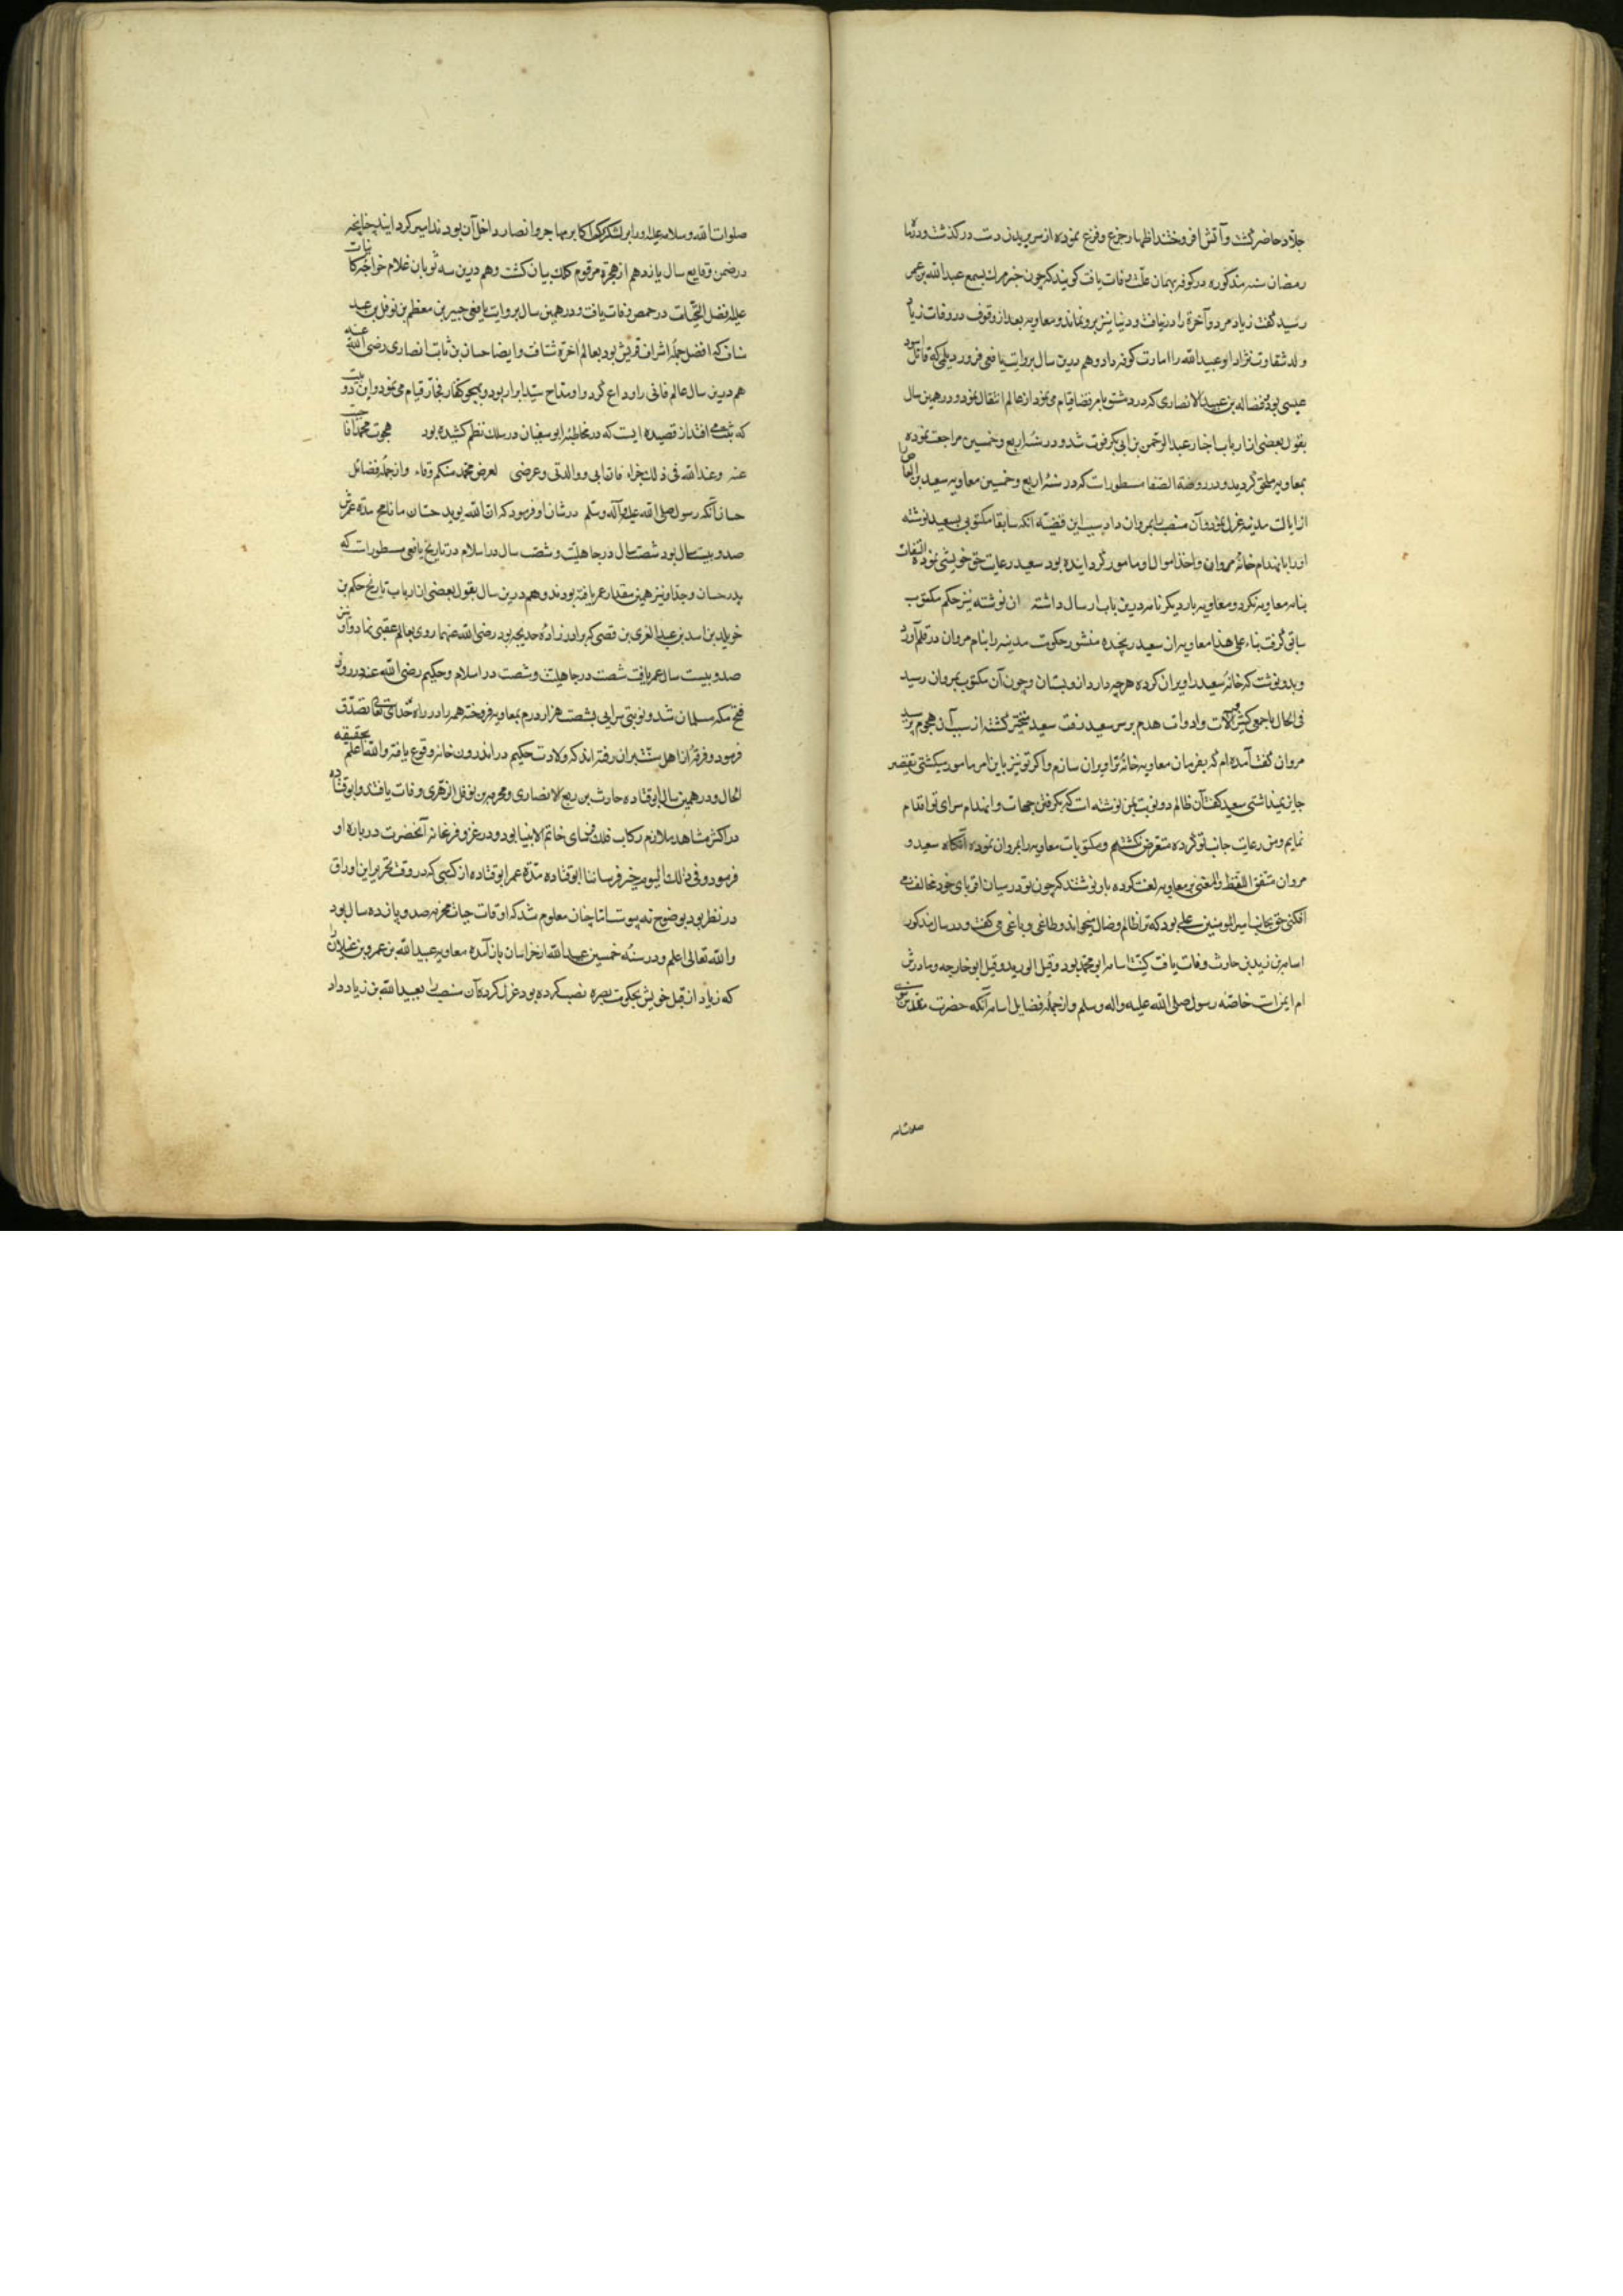 جلاد حاضر گشت و آتش افروختند اظهار جزع و فزع نموده از سر بریدن دست درگذشت و در ماه
رمضان سنه مذکوره در کوفه بهمان علت وفات یافت کویند که چون خبر مرک بسمع عبدالله بن عمر
رسید گفت زیاد مرد و آخرة را در نیافت و دنیا نیز برو نماند و معاویه بعد از وقوف در وفات زیاد
ولد شقاوت نژاد او عبیدالله را امارت کوفه داد و هم درین سال بروایت یافعی فروز دیلمی که قاتل اسود
عیسی بود و فضاله بن عبید الانصاری که در دمشق بامر قضا قیام می نمود از عالم انتقال نمود و در همین سال
بقول بعضی از ارباب اخبار عبد الرحمن بن ابی بکر فوت شد و در سنه اربع و خمسین مراجعت نموده
بمعاویه ملحق گردید و در روضة الصفا مسطورات که در سنه اربع و خمسین معاویه سعید بن العاص
از ایالت مدینه عزل نمود و آن منصب بمروان داد سبب این قضیه آنکه سابقا مکتوبی بسعید نوشته
او را بانهدام خانه مروان و اخذ اموال او مامور گردانیده بود سعید رعایت حق خویشی نموده التفات
بنامه معاویه نکرد و معاویه بار دیکر نامه درین باب ارسال داشته ان نوشته نیز حکم مکتوب
سابق گرفت بناء علی هذا معاویه از سعید رنجیده منشور حکومت مدینه را بنام مروان در قلم آورد
و بدو نوشت که خانه سعید را ویران کرده هرچه دارد ازو بستان و چون آن مکتوب بمروان رسید
فی الحال با جمعی کثیر و آلات و ادوات هدم بر سر سعید رفت سعید متحیر گشته از سبب آن هجوم پرسید
مروان گفت آمده ام که بفرمان معاویه خانه ترا ویران سازم و اکر تو نیز باین امر مامور میکشتی تقصیر
جایز نمیداشتی سعید گفت آن ظالم دو نوبت بمن نوشته است که بگرفتن جهات و انهدام سرای تو اقدام
نمایم و من رعایت جانب تو کرده متعرض نکشتم و مکتوبات معاویه را بمروان نموده آنکاه سعید و
مروان متفق اللفظ والمعنی بر معاویه لعنت کرده باو نوشتند که چون تو در میان اقربای خود مخالفت می
افکنی حق بجانب امیرالمومنین علی بود که ترا ظالم و ضال میخواند و طاغی و باغی می گفت و در سال مذکور
اسامه بن زید بن حارث وفات یافت کنیت اسامه ابو محمد بود و قیل ابو زید و قیل ابو خارجه و مادرش
ام ایمن است خاصه رسول صلی الله علیه واله وسلم و از جمله فضایل اسامه آنکه حضرت مقدس نبوی
صلوات الله وسلامه علیه او را بر لشکری که اکابر مهاجر و انصار داخل آن بودند امیر گردانید چنانچه
در ضمن وقایع سال یازدهم از هجرة مرقوم کلک بیان گشت و هم درین سه ثوبان غلام خواجه کاینات
علیه افضل التحیات در حمص وفات یافت و در همین سال بروایت یافعی جبیر بن معظم بن نوفل بن عبد
مناف که افضل جمله اشراف قریش بود بعالم اخرة شتافت و ایضا حسان بن ثابت انصاری رضی الله عنه
هم درین سال عالم فانی را وداع کرد و او مداح سید ابرار بود و بهجو کفار فجار قیام می نمود و این دو بیت
که ثبت می افتد از قصیده ایست که در مخاطبه ابو سفیان در سلک نظم کشیده بود هجوت محمدا فاجبت
عنه وعند الله فی ذلک جزاء فان ابی و والدتی وعرضی لعرض محمد منکم وقاء و از جمله فضائل
حسان آنکه رسول صلی الله علیه وآله وسلم در شان او فرمود که ان الله یوید حسان ما نافح مدة عمرش
صد و بیست سال بود شصت سال در جاهلیت و شصت سال در اسلام در تاریخ یافعی مسطورات که
پدر حسان و جد او نیز همین مقدار عمر یافته بودند و هم درین سال بقول بعضی از ارباب تاریخ حکیم بن
خویلد بن اسد بن عبد العزی بن قصی که برادر زاده خدیجه بود رضی الله عنها روی بعالم عقبی نهاد و او نیز
صد و بیست سال عمر یافت شصت در جاهلیت و شصت در اسلام و حکیم رضی الله عنه در روز
فتح مکه مسلمان شد و نوبتی سرایی بشصت هزار درم بمعاویه فروخته همه را در راه خدای تعالی تصدق
فرمود و فرقه از اهل سنت بران رفته اند که ولادت حکیم در اندرون خانه وقوع یافته والله اعلم بحقیقه
الحال و در همین سال ابو قتاده حارث بن ربع الانصاری و مخرمه بن نوفل الزهری وفات یافتند و ابو قتاده
در اکثر مشاهد ملازم رکاب فلک فرسای خاتم الانبیا بود و در غزو فرغانه آنحضرت درباره او
فرمود و فی ذلک الیوم خیر فرساننا ابو قتاده مدة عمر ابو قتاده از کتبی که در وقت تحریر این اوراق
در نظر بود بوضوح نه پیوست اما چنان معلوم شد که اوقات حیات مخرمه صد و پانزده سال بود
والله تعالی اعلم و در سنه خمسین عبدالله از خراسان باز آمده معاویه عبیدالله بن عمرو بن غیلان را
که زیاد از قبل خویش بحکومت بصره نصب کرده بود عزل کرده آن منصب را بعبیدالله بن زیاد داد